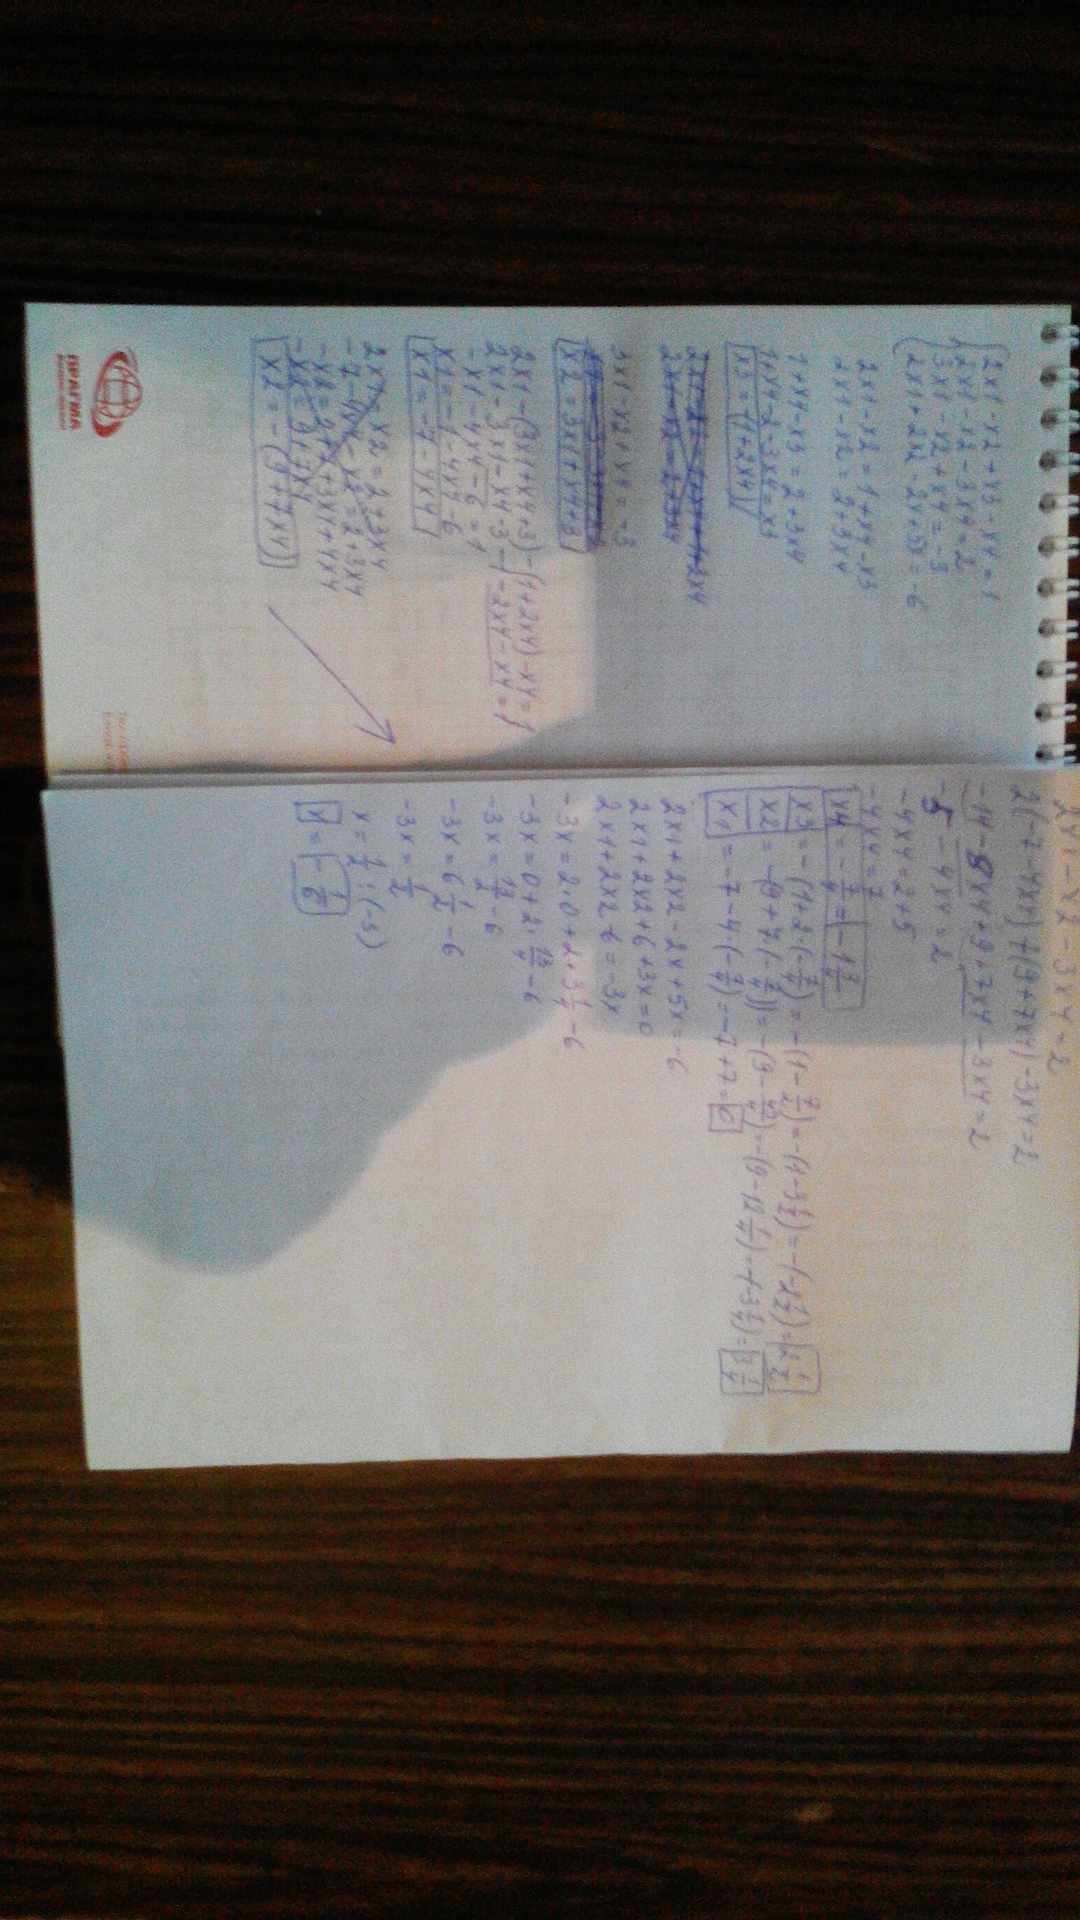 2x1-x2+x3-x4=1
2x1-x2-3x4=2
3x1-x2+x4=-3
2x1+2x2-2x+5x=-6
2x1-x2=1+x4-x3
2x1-x2=2+3x4
1+x4-x3=2+3x4
1+x4-2-3x4=x3
x3=-(1+2x4)
3x1-x2+x4=-3
x2=3x1+x4+3
2x1-(3x1+x4+3)-(1+2x4)-x4=1
2x1-3x1-x4-3-1-2x4-x4=1
-x1-4x4-6=1
x1=-1-4x4-6
x1=-7-4x4
2x1-x2=2+3x4
-7-4x4-x2=2+3x4
x2=-(9+7x4)
2x1-x2-3x4=2
2(-7-4x4)+(9+7x4)-3x4=2
-14-8x4+9+7x4-3x4=2
-5-4x4=2
-4x4=2+5
-4x4=7
x4=-7/4=-1 3/4
x3=-(1+2·(-7/4))=-(1-7/2)=-(1-3 1/2)=-(-2 1/2)=2 1/2
x2=-(9+7·(-7/4))=-(9-49/4)=-(9-12 1/4)=-(-3 1/4)=3 1/4
x1=-7-4·(-7/4)=-7+7=0
2x1+2x2-2x+5x=-6
2x1+2x2+6+3x=0
2x1+2x2-6=-3x
-3x=2·0+2·3 1/4-6
-3x=0+2·13/4-6
-3x=13/2-6
-3x=6 1/2-6
-3x=1/2
x=1/2:(-3)
x=-1/6